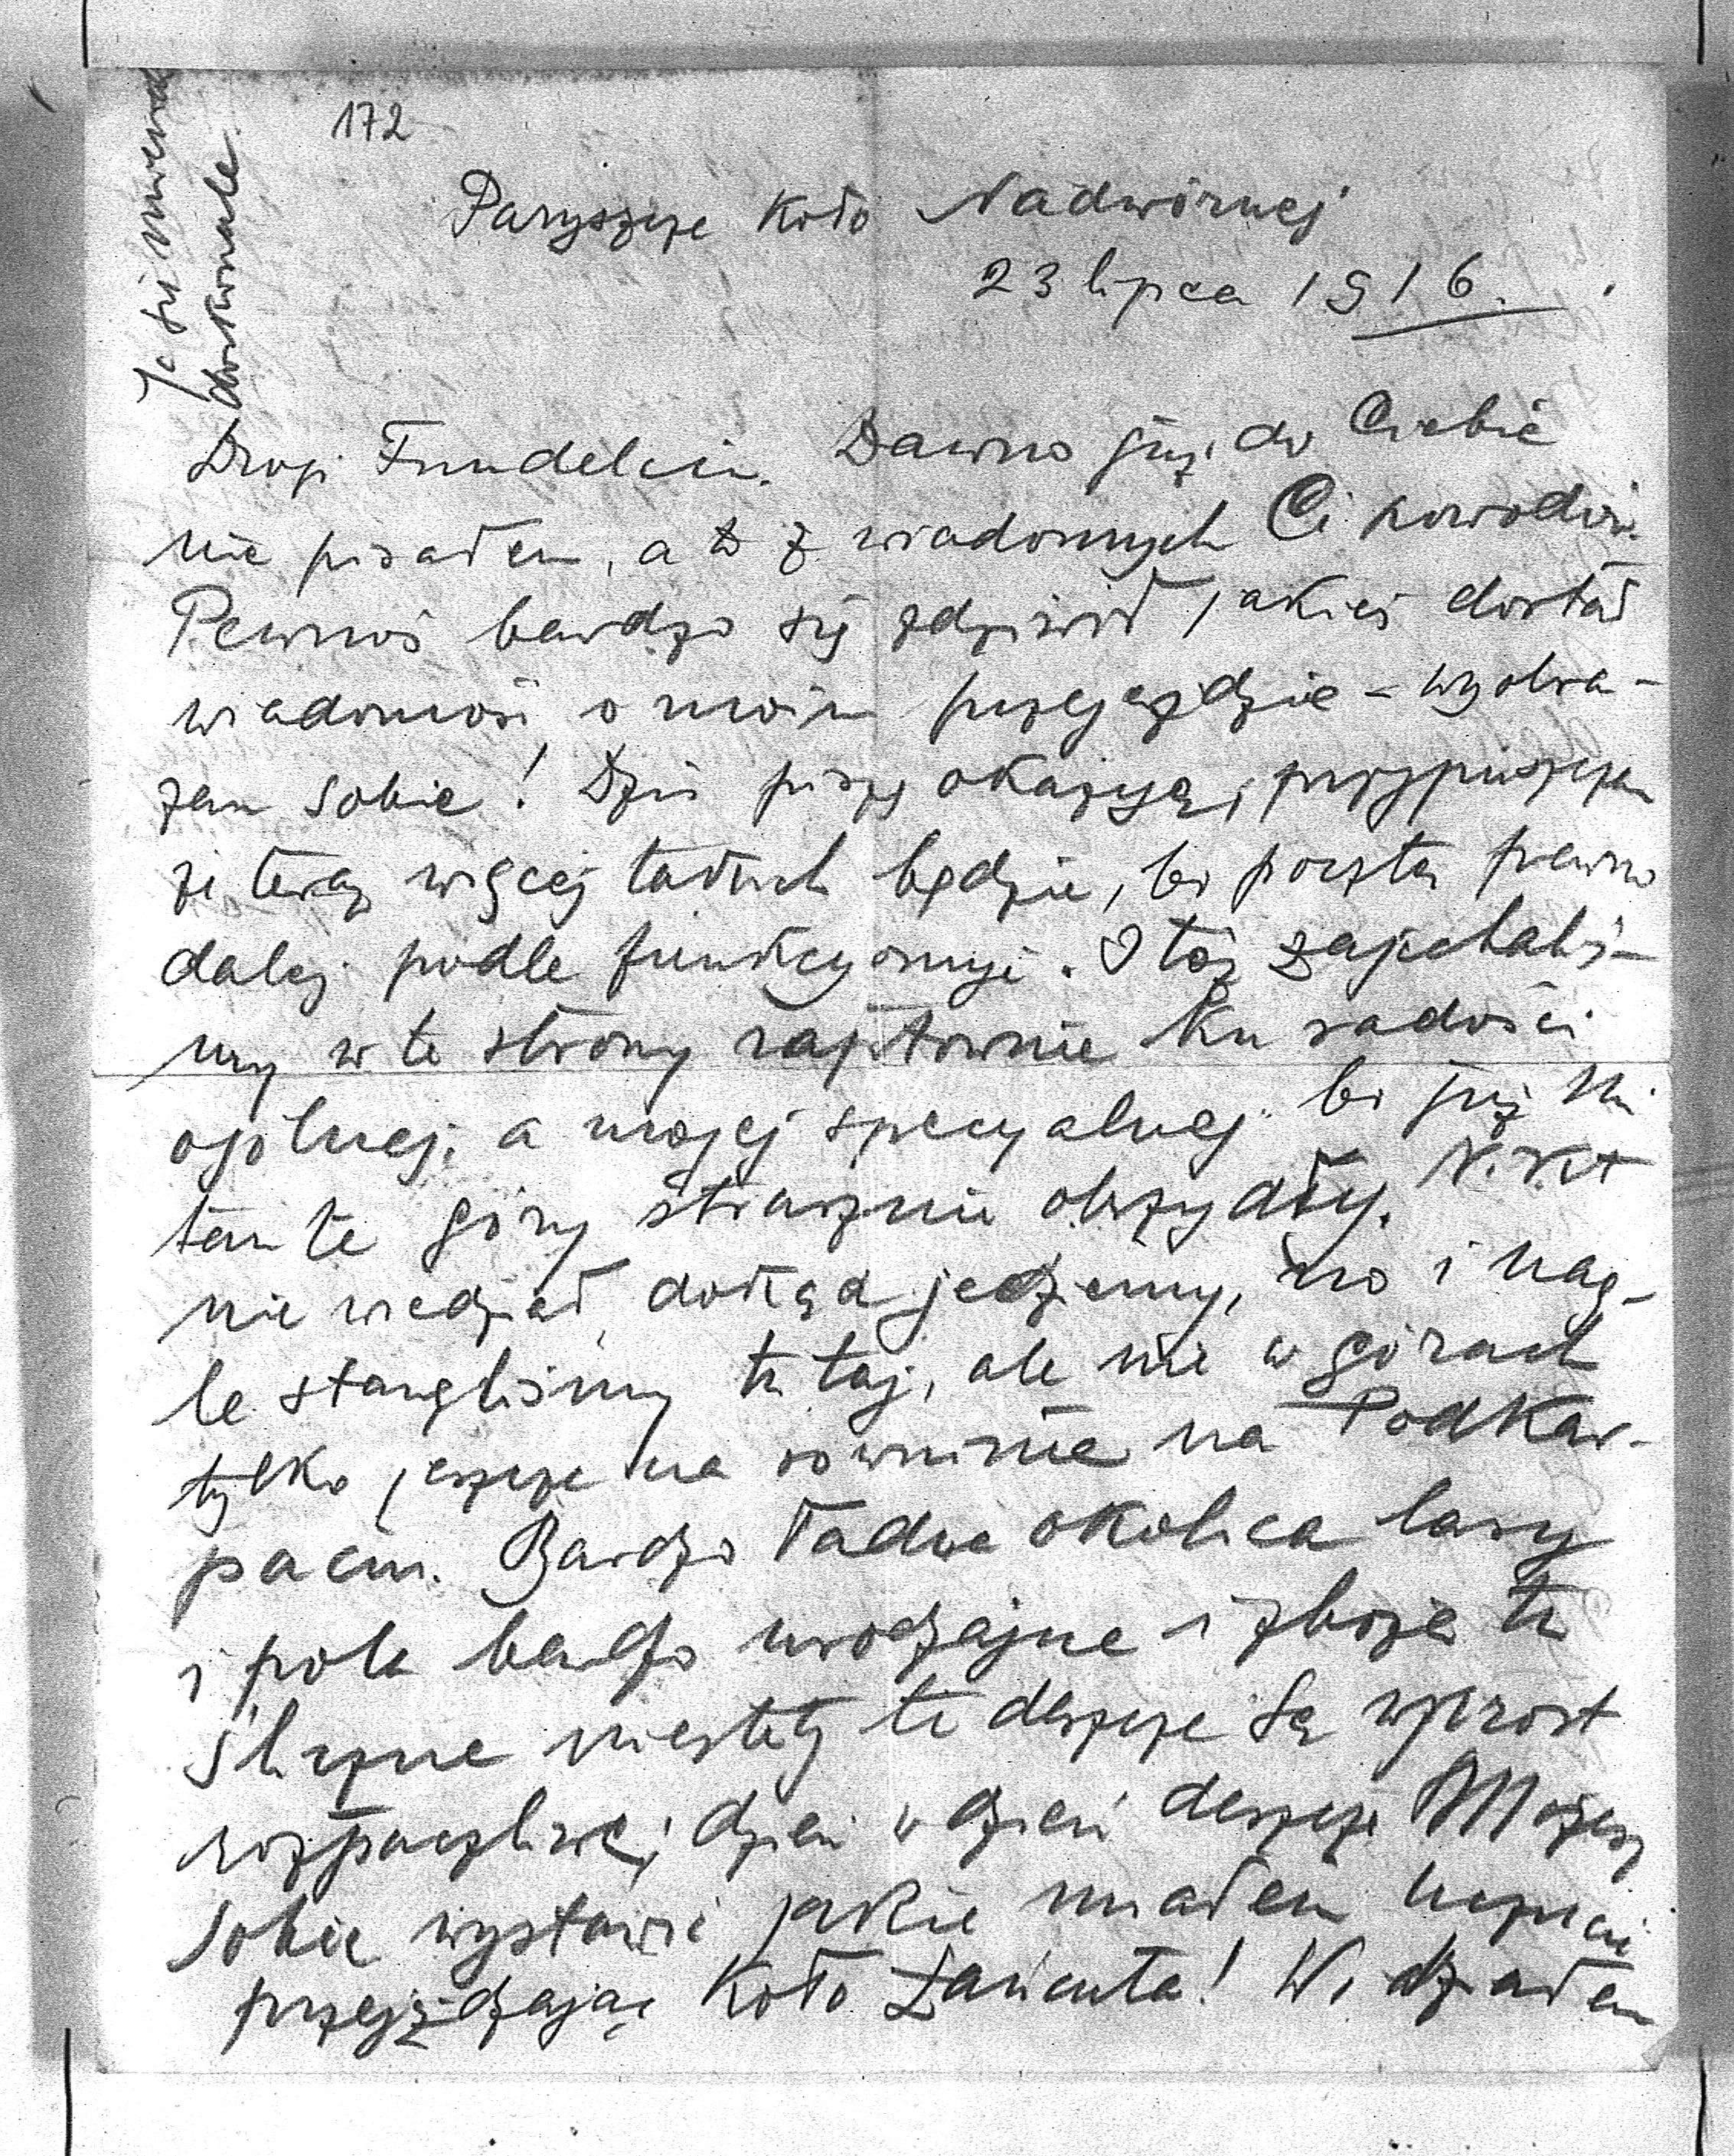 172
Ja się miewam
doskonale
Paryszcze koło Nadwórnej
23 lipca 1916.
Drogi Fundelciu. Dawno już do Ciebie
nie pisałem, a to z wiadomych Ci powodów.
Pewnoś bardzo się zdziwił jakieś dostał
wiadomość o moim przejeździe – wyobra-
żam sobie! Dziś piszę okazyą, przypuszczam
że teraz więcej takich będzie, bo poczta pewno
dalej podle funkcyonuje. Otóż zajechaliś-
my w te strony raptownie ku radości
ogólnej, a mojej specyalnej bo już mi
tamte góry strasznie obrzydły. Nikt
nie wiedział dokąd jedziemy, no i nag-
le stanęliśmy tutaj, ale nie w górach
tylko jeszcze na równinie na Podkar-
paciu. Bardzo ładna okolica lasy
i pola bardzo urodzajne i zboża tu
śliczne niestety te deszcze są wprost
rozpaczliwe; dzień w dzień deszcze Możesz
sobie wystawić jakie miałem uczucie
przejeżdżając koło Łańcuta! Widziałem